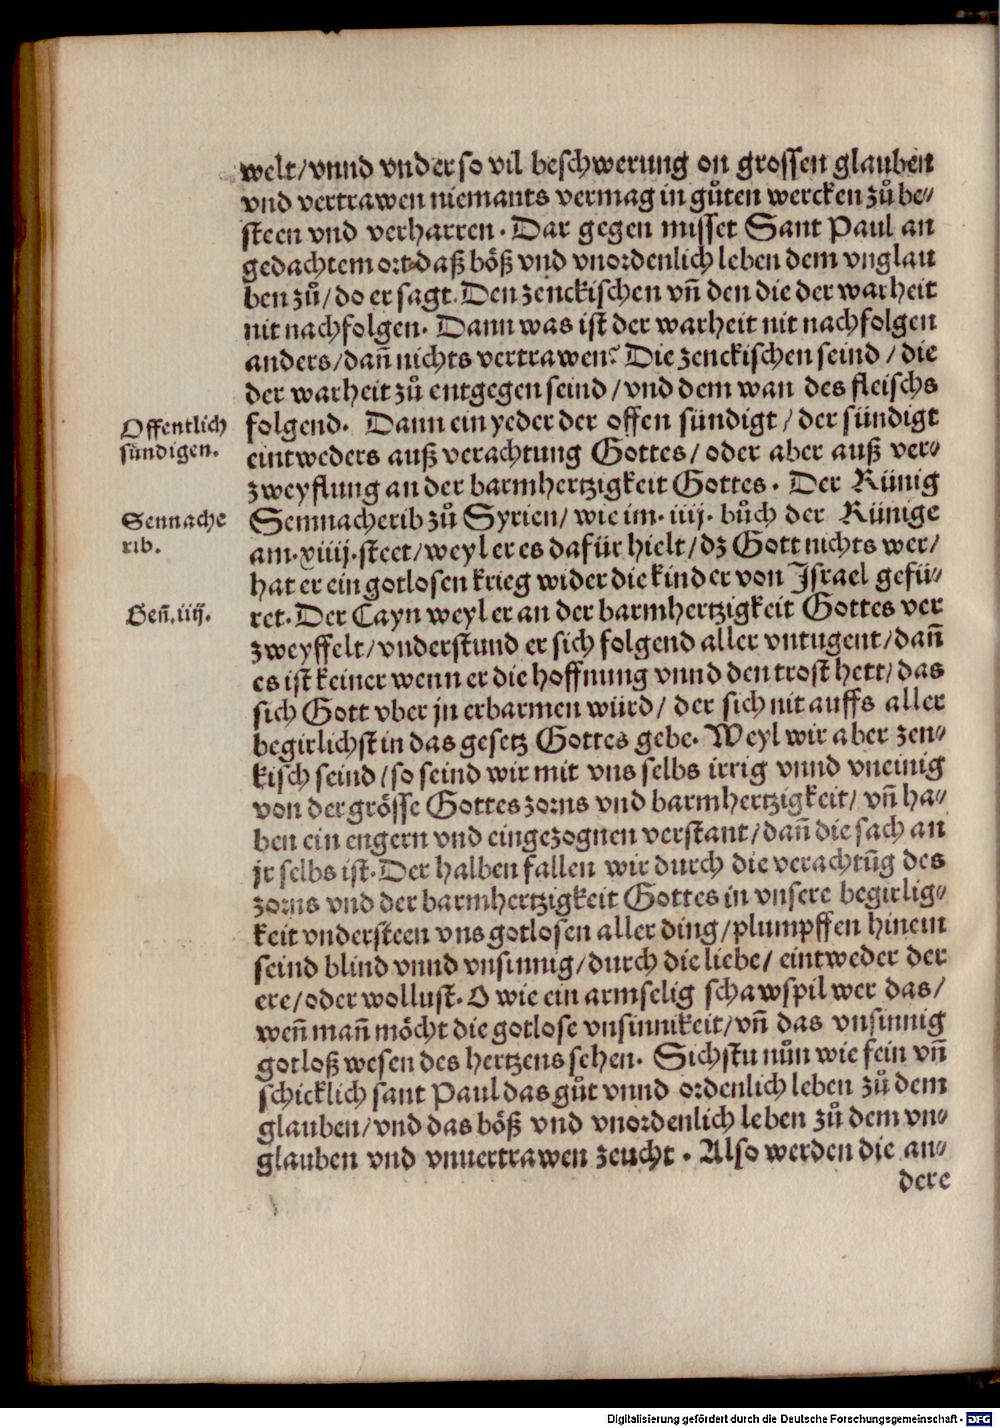 welt/vnnd vnder so vil beschwerung on grossen glauben
vnd vertrawen niemants vermag in gůten wercken zů be-
steen vnd verharren. Dar gegen misset Sant Paul an
gedachtem ort daß böß vnd vnordenlich leben dem vnglau
ben zů/do er sagt. Den zenckischen vñ den die der warheit
nit nachfolgen. Dann was ist der warheit nit nachfolgen
anders/dañ nichts vertrawen? Die zenckischen seind/die
der warheit zů entgegen seind/vnd dem wan des fleischs
Offentlich
sündigen.
folgend. Dann ein yeder der offen sündigt/der sündigt
eintweders auß verachtung Gottes/oder aber auß ver-
zweyflung an der barmhertzigkeit Gottes. Der Künig
Sennache
rib.
Sennacherib zů Syrien/wie im. iiij. bůch der Künige
am. xiiij. steet/weyl er es dafür hielt/dz Gott nichts wer/
hat er ein gotlosen krieg wider die kinder von Israel gefü-
Geñ. iiij.
ret. Der Cayn weyl er an der barmhertzigkeit Gottes ver
zweyffelt/vnderstund er sich folgend aller vntugent/dañ
es ist keiner wenn er die hoffnung vnnd den trost hett/das
sich Gott vber jn erbarmen würd/der sich nit auffs aller
begirlichst in das gesetz Gottes gebe. Weyl wir aber zen-
kisch seind/so seind wir mit vns selbs irrig vnnd vneinig
von der grösse Gottes zorns vnd barmhertzigkeit/vñ ha-
ben ein engern vnd eingezognen verstant/dañ die sach an
jr selbs ist. Der halben fallen wir durch die verachtũg des
zorns vnd der barmhertzigkeit Gottes in vnsere begirlig-
keit vndersteen vns gotlosen aller ding/plumpffen hinein
seind blind vnnd vnsinnig/durch die liebe/eintweder der
ere/oder wollust. O wie ein armselig schawspil wer das/
weñ mañ möcht die gotlose vnsinnikeit/vñ das vnsinnig
gotloß wesen des hertzens sehen. Sichstu nůn wie fein vñ
schicklich sant Paul das gůt vnnd ordenlich leben zů dem
glauben/vnd das böß vnd vnordenlich leben zů dem vn-
glauben vnd vnuertrawen zeucht. Also werden die an-
dere
Digitalisierung gefördert durch die Deutsche Forschungsgemeinschaft - DFG